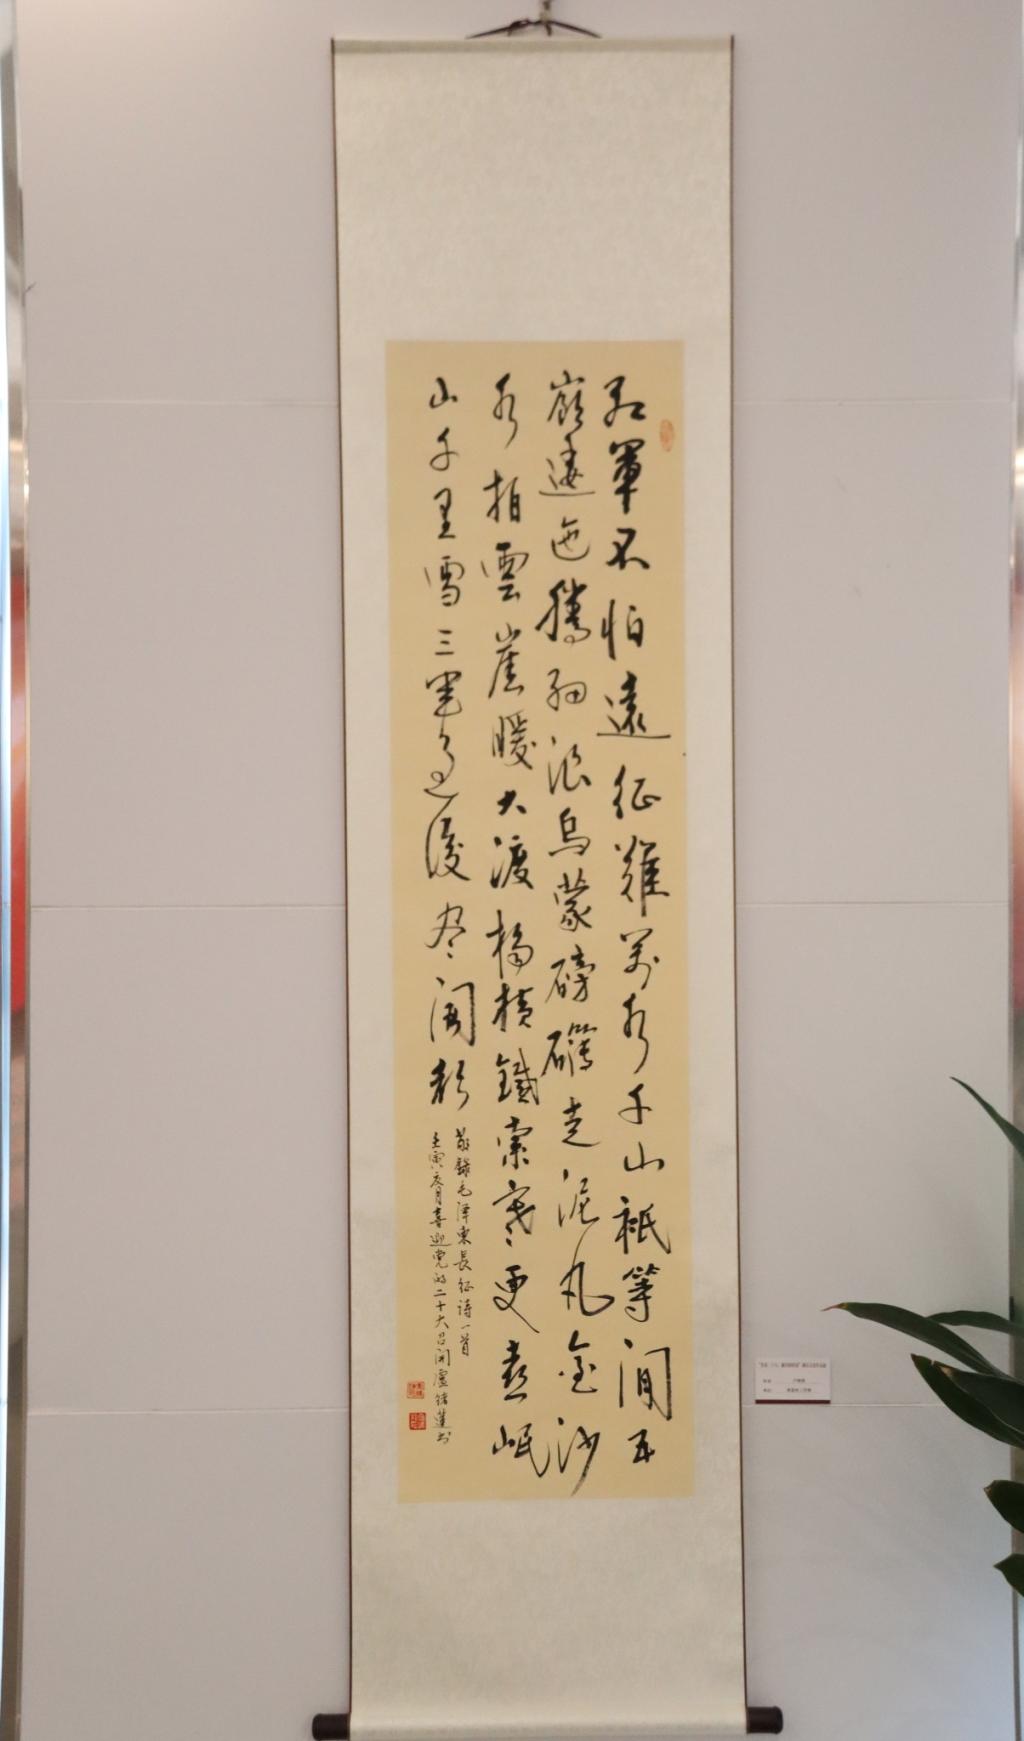 紅軍不怕遠征難萬水千山祇等閒五
嶺逶迤騰細浪烏蒙磅礴走泥丸金沙
水拍雲崖暖大渡橋横鐵索寒更喜岷
山千里雪三軍過後尽開颜
敬錄毛泽東長征诗一首
壬寅夏月喜迎党的二十大召開盧蓮书